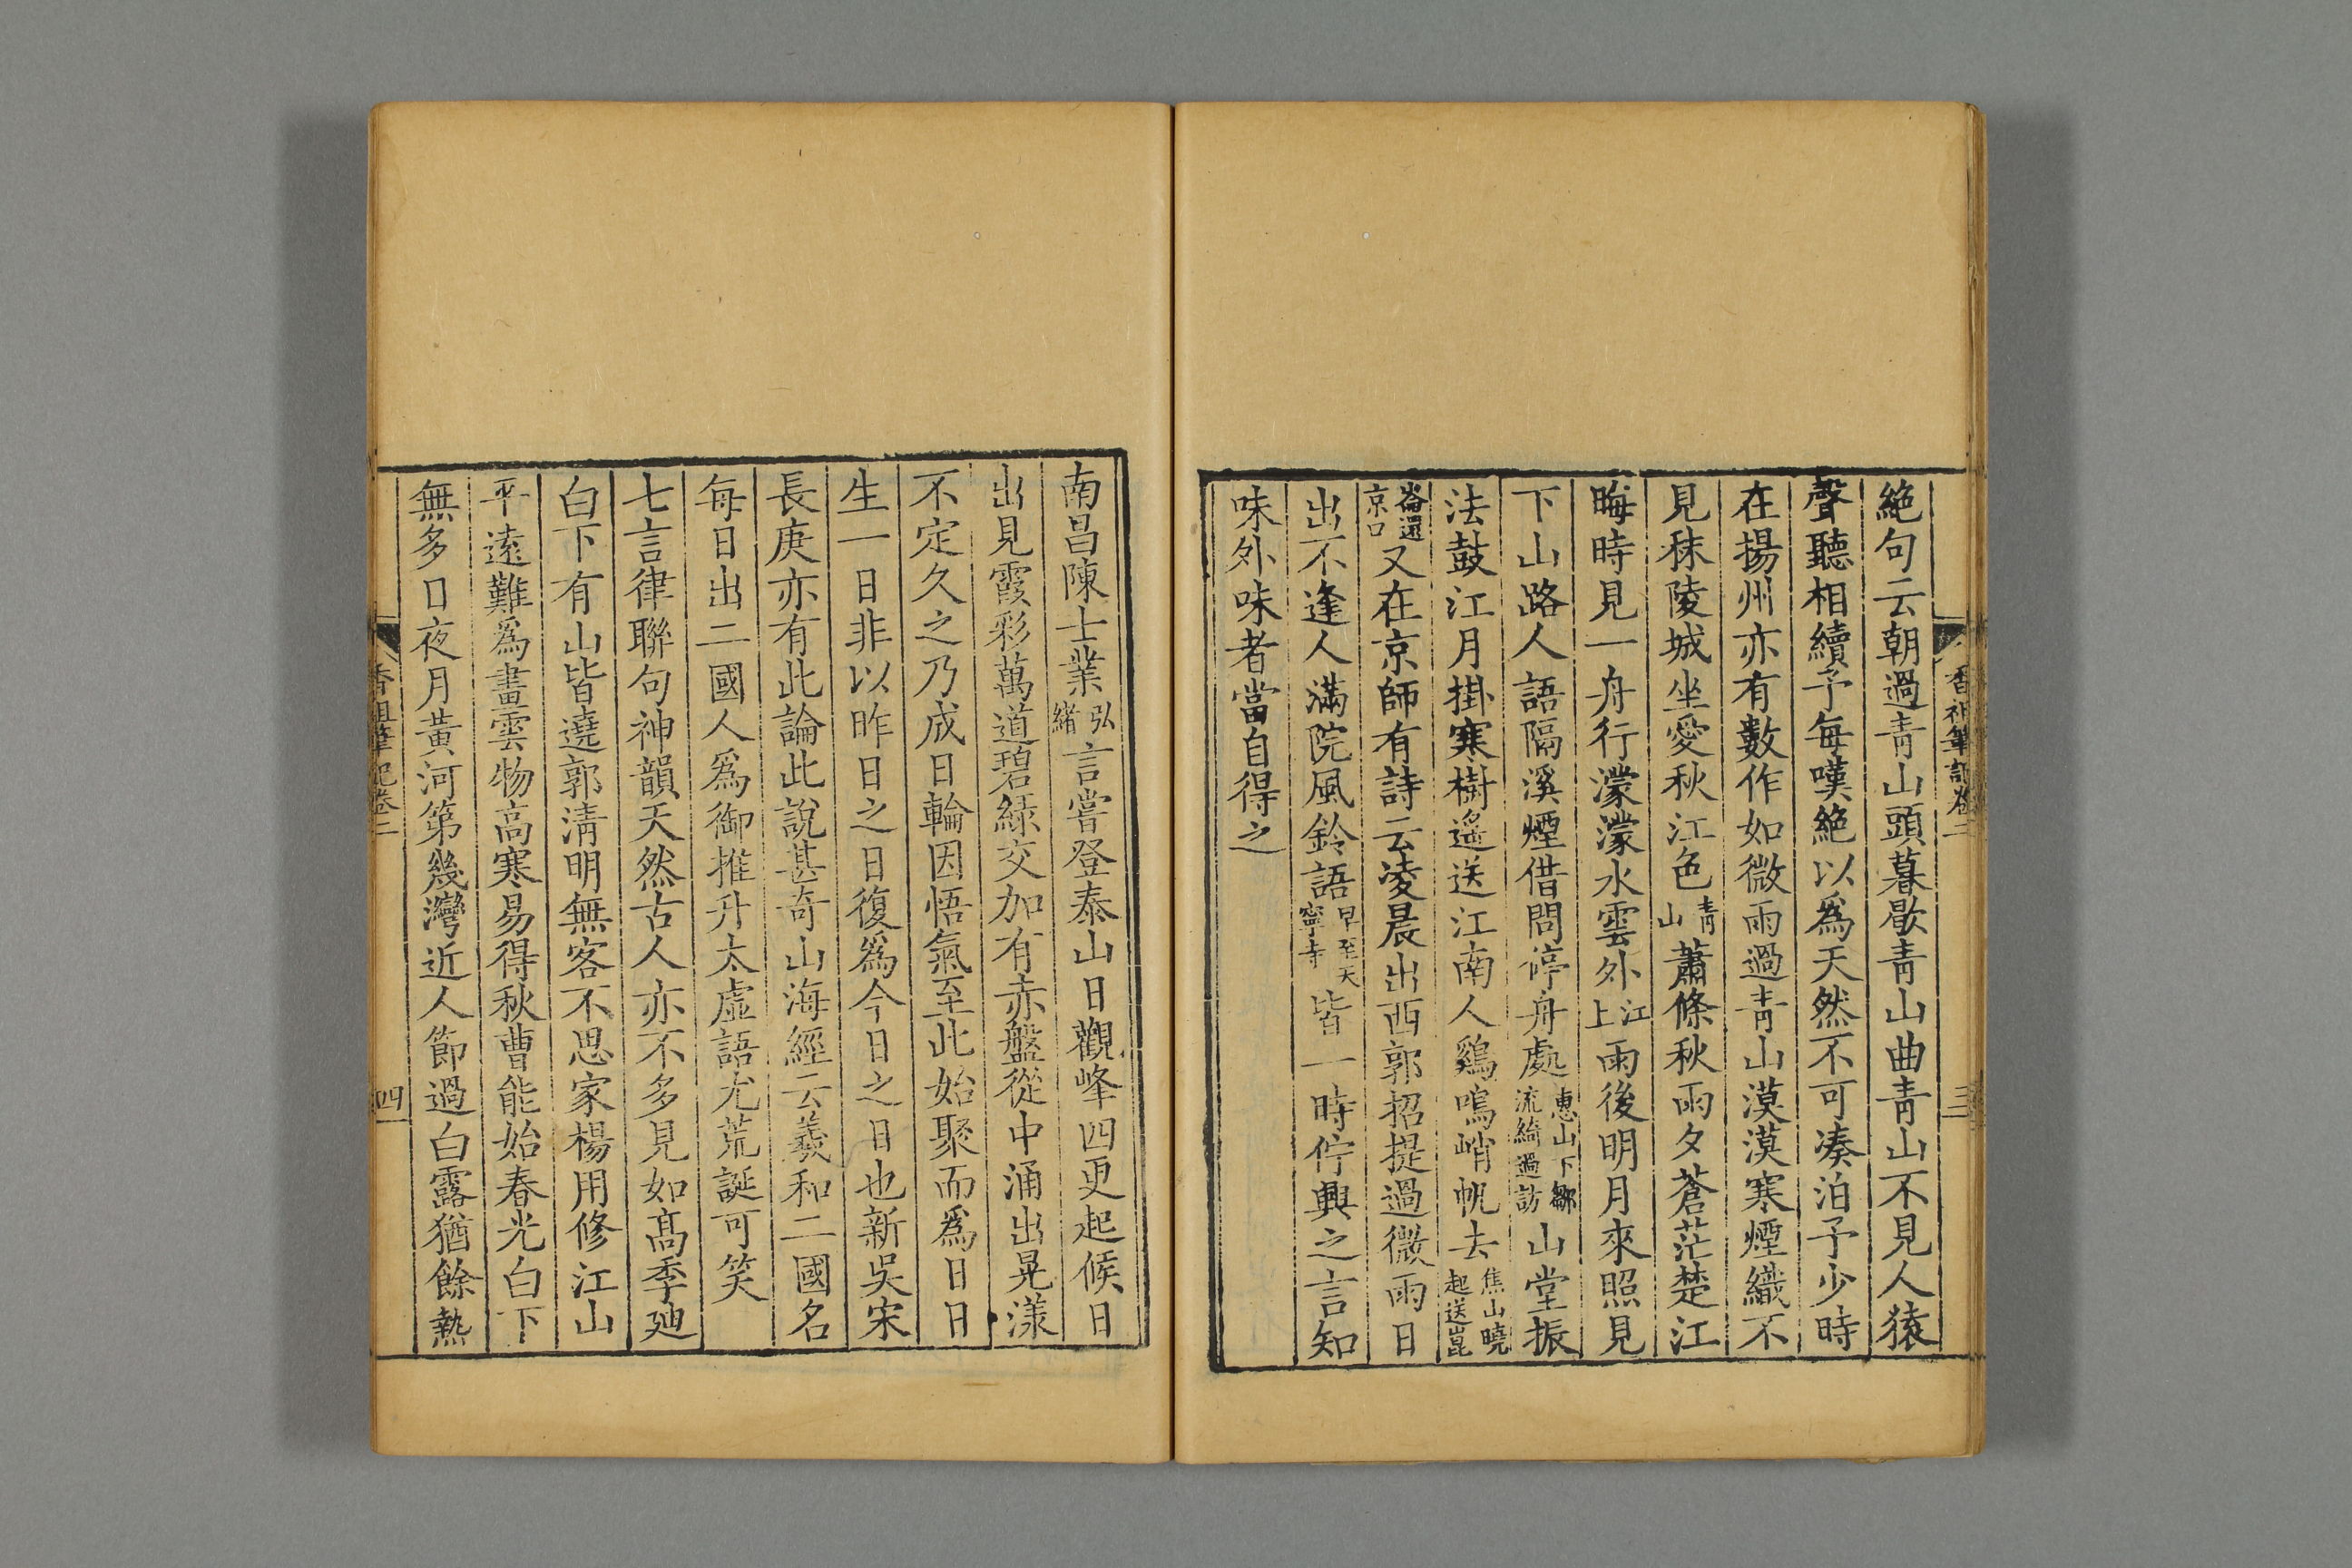 香祖筆記卷二
三
絶句云朝過青山頭暮歇青山曲青山不見人猿
聲聽相續予每嘆絶以爲天然不可凑泊予少時
在揚州亦有數作如微雨過青山漠漠寒煙織不
見秣陵城坐愛秋江色青山蕭條秋雨夕蒼茫楚江
晦時見一舟行濛濛水雲外江上雨後明月來照見
下山路人語隔溪煙借問停舟處惠山下鄒流綺過訪山堂振
法鼓江月掛寒樹遙送江南人鷄鳴峭帆去焦山曉起送崑
崙還京口又在京師有詩云凌晨出西郭招提過微雨日
出不逢人滿院風鈴語早至天寧寺皆一時佇興之言知
味外味者當自得之
南昌陳士業弘緒言嘗登泰山日觀峰四更起候日
出見霞彩萬道碧綠交加有赤盤從中涌出晃漾
不定久之乃成日輪因悟氣至此始聚而爲日日
生一日非以昨日之日復爲今日之日也新吳宋
長庚亦有此論此說甚奇山海經云羲和二國名
每日出二國人爲御推升太虛語尤荒誕可笑
七言律聯句神韻天然古人亦不多見如高季迪
白下有山皆遶郭淸明無客不思家楊用修江山
平遠難爲畫雲物高寒易得秋曹能始春光白下
無多日夜月黃河第幾灣近人節過白露猶餘熱
香祖筆記卷二
四